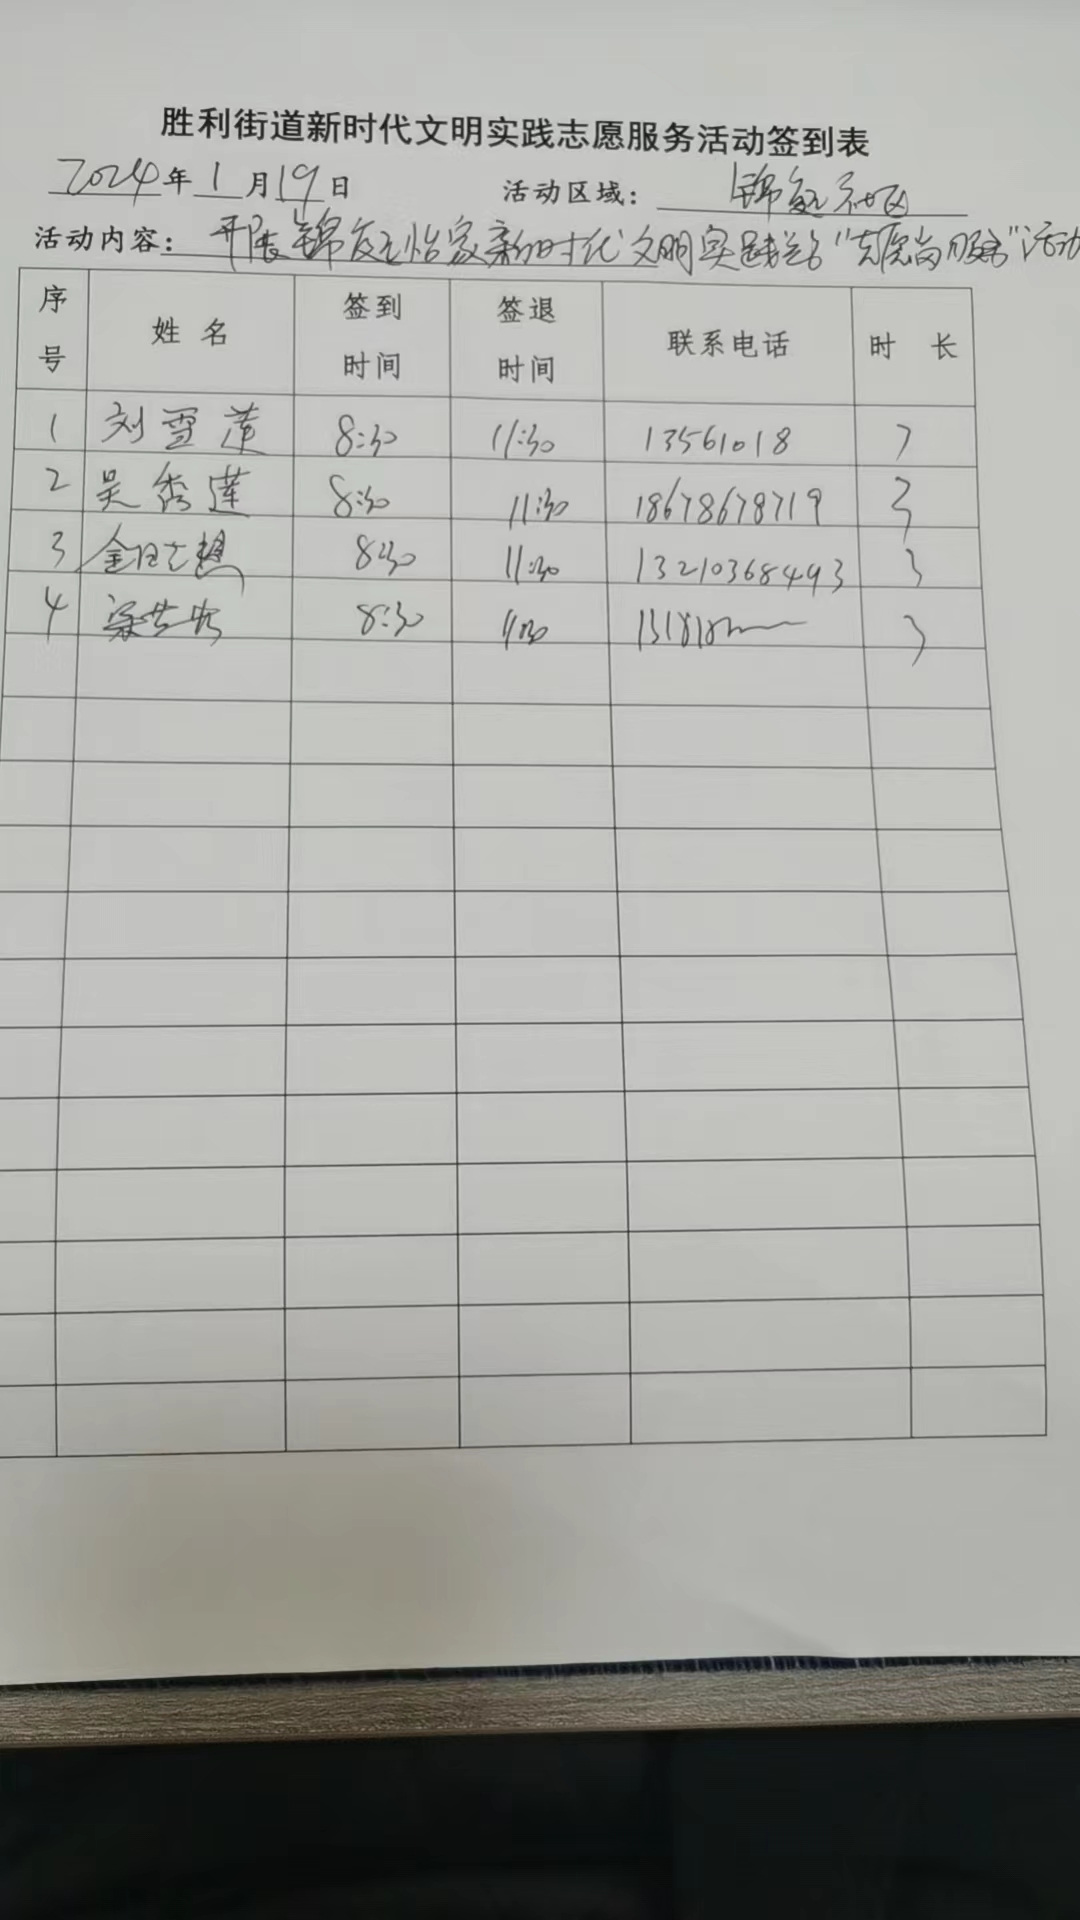 胜利街道新时代文明实践志愿服务活动签到表
2024年1月19日 活动区域: 锦苑社区
活动内容: 开展锦苑怡家新时代文明实践站"志愿岗服务"活动
序号 姓名 签到时间 签退时间 联系电话 时长
1 刘雪莲 8:30 11:30 13561018
2 吴秀莲 8:30 11:30 18678678719 3
3 8:30 11:30 13210368493 3
4 8:30 11:30 3